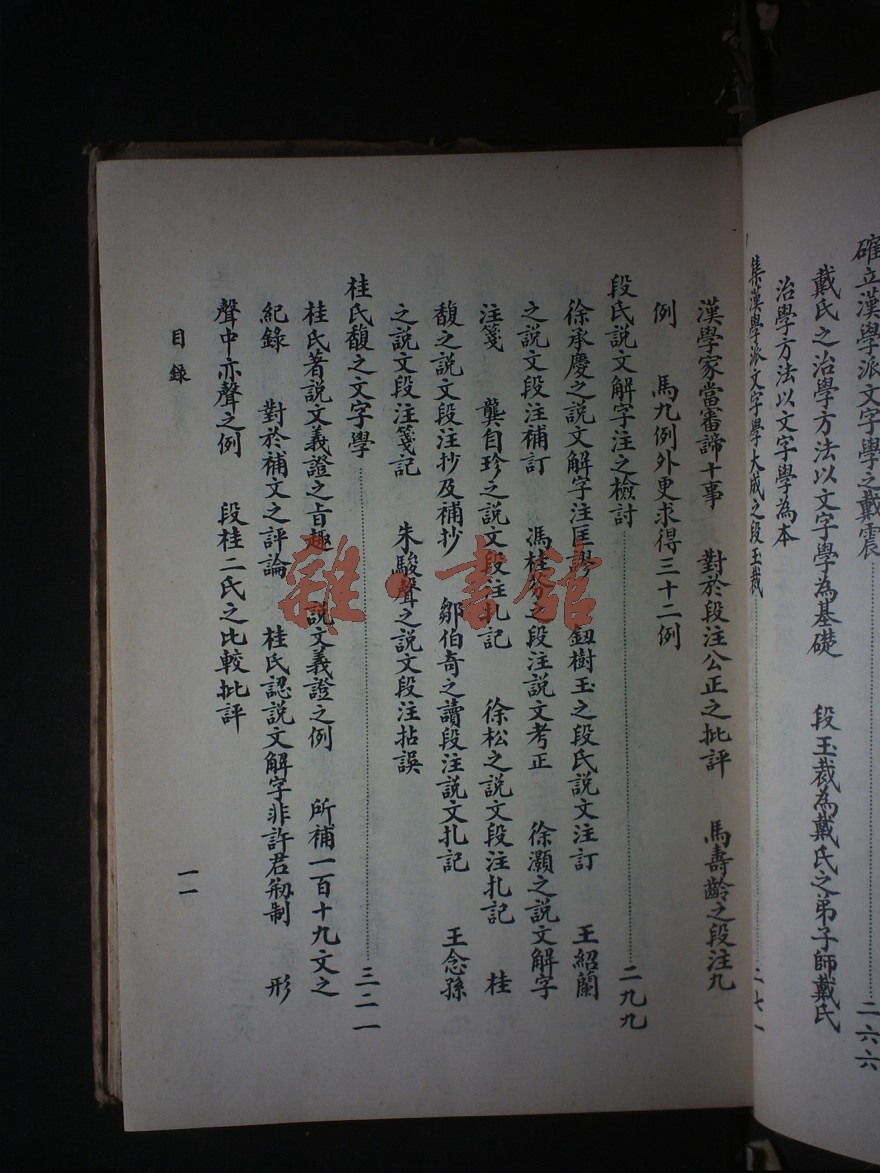 確立漢學派文字學之戴震……二六六
戴氏之治學方法以文字學為基礎　段玉裁為戴氏之弟子師戴氏
治學方法以文字學為本
集漢學派文字學大成之段玉裁……二七一
漢學家當審諦十事　對於段注公正之批評　馬壽齡之段注九
例　馬九例外更求得三十二例
段氏説文解字注之檢討……二九九
徐承慶之説文解字注匡謬　鈕樹玉之段氏説文注訂　王紹蘭
之説文段注補訂　馮桂芬之段注説文考正　徐灝之説文解字
注箋　龔自珍之説文段注札記　徐松之説文段注札記　桂
馥之説文段注抄及補抄　鄒伯奇之讀段注説文札記　王念孫
之説文段注箋記　朱駿聲之説文段注拈誤
桂氏馥之文字學……三二一
桂氏著説文義證之旨趣　説文義證之例　所補一百十九文之
紀錄　對於補文之評論　桂氏認説文解字非許君剏制　形
聲中亦聲之例　段桂二氏之比較批評
目錄
一一
雜·書館